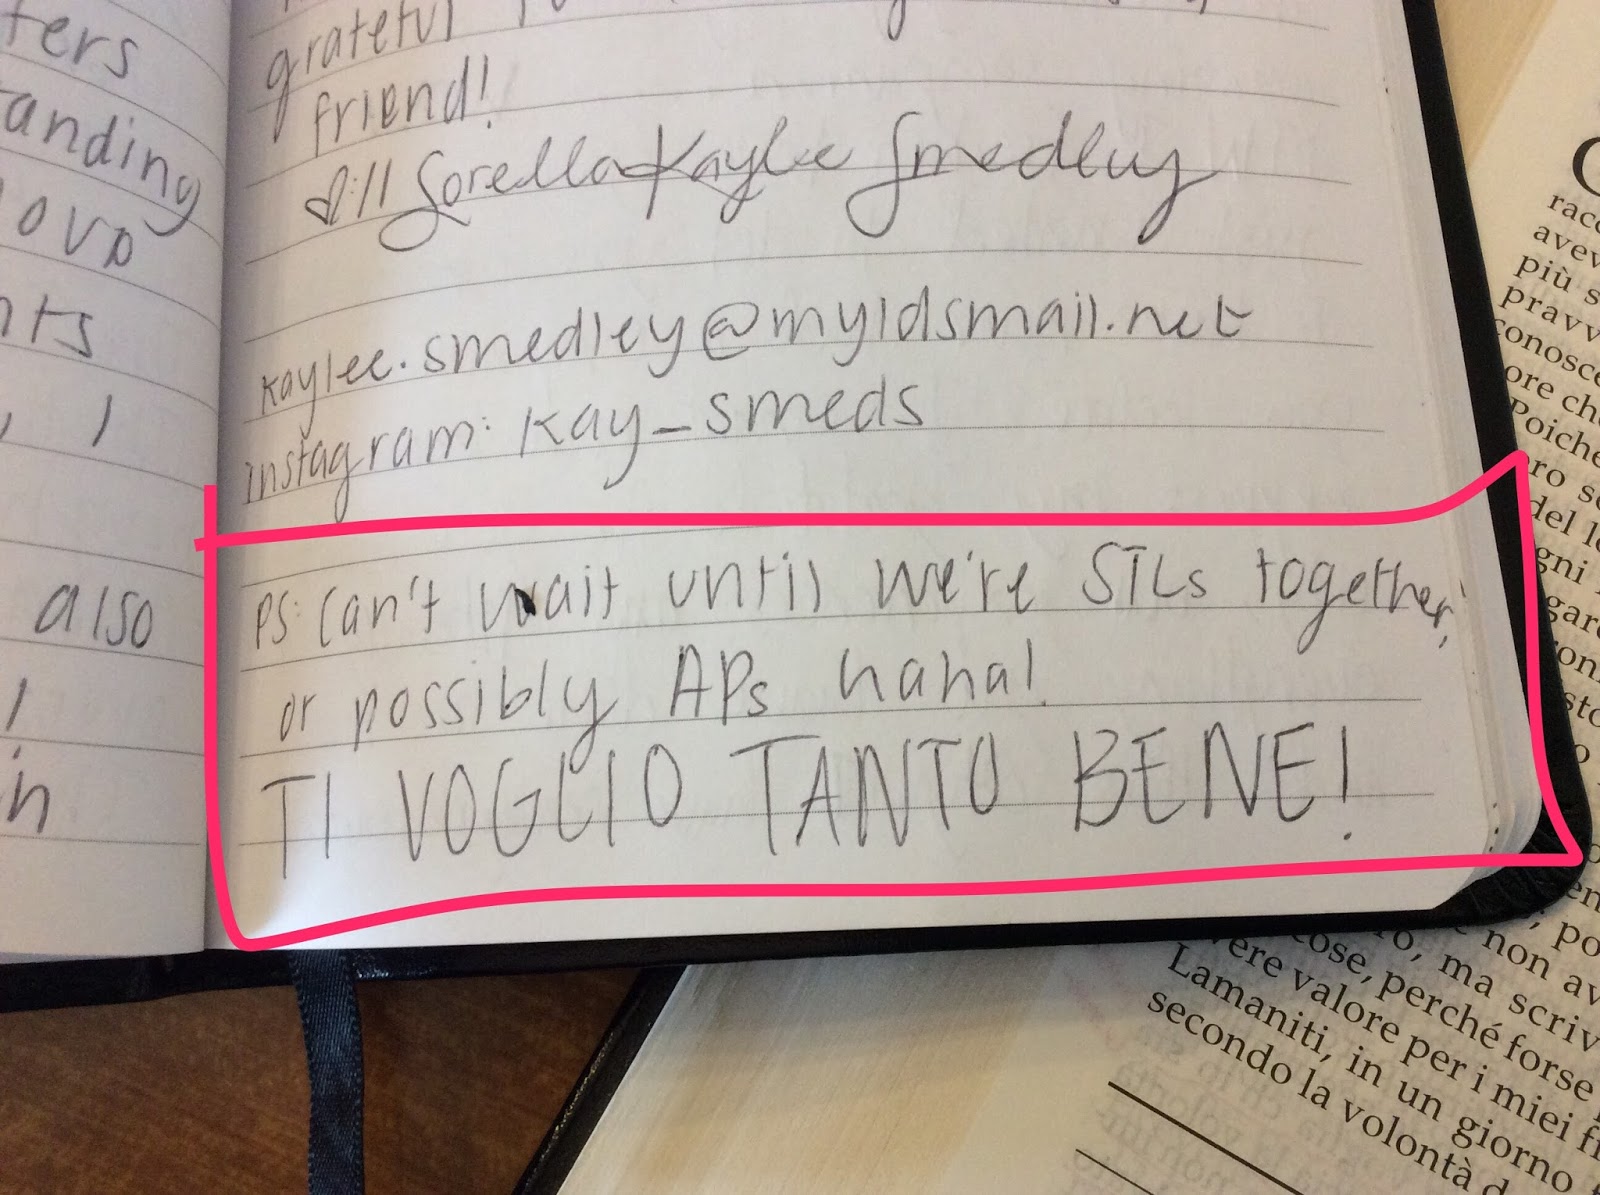 ters
tanding
love
nts
, I
also
in
grateful
friend!
Sorella Kaylee Smedley
kaylee.smedley@myldsmail.net
instagram: kay_smeds
PS: Can't wait until we're STLs together,
or possibly APs haha!
TI VOGLIO TANTO BENE!
racc
avev
più s
pravv
conosce
ore ch
Poiche
ro s
del l
gni
gard
non av
, po
ro, ma scriv
cose, perché forse
vere valore per i miei f
Lamaniti, in un giorno
secondo la volontà d